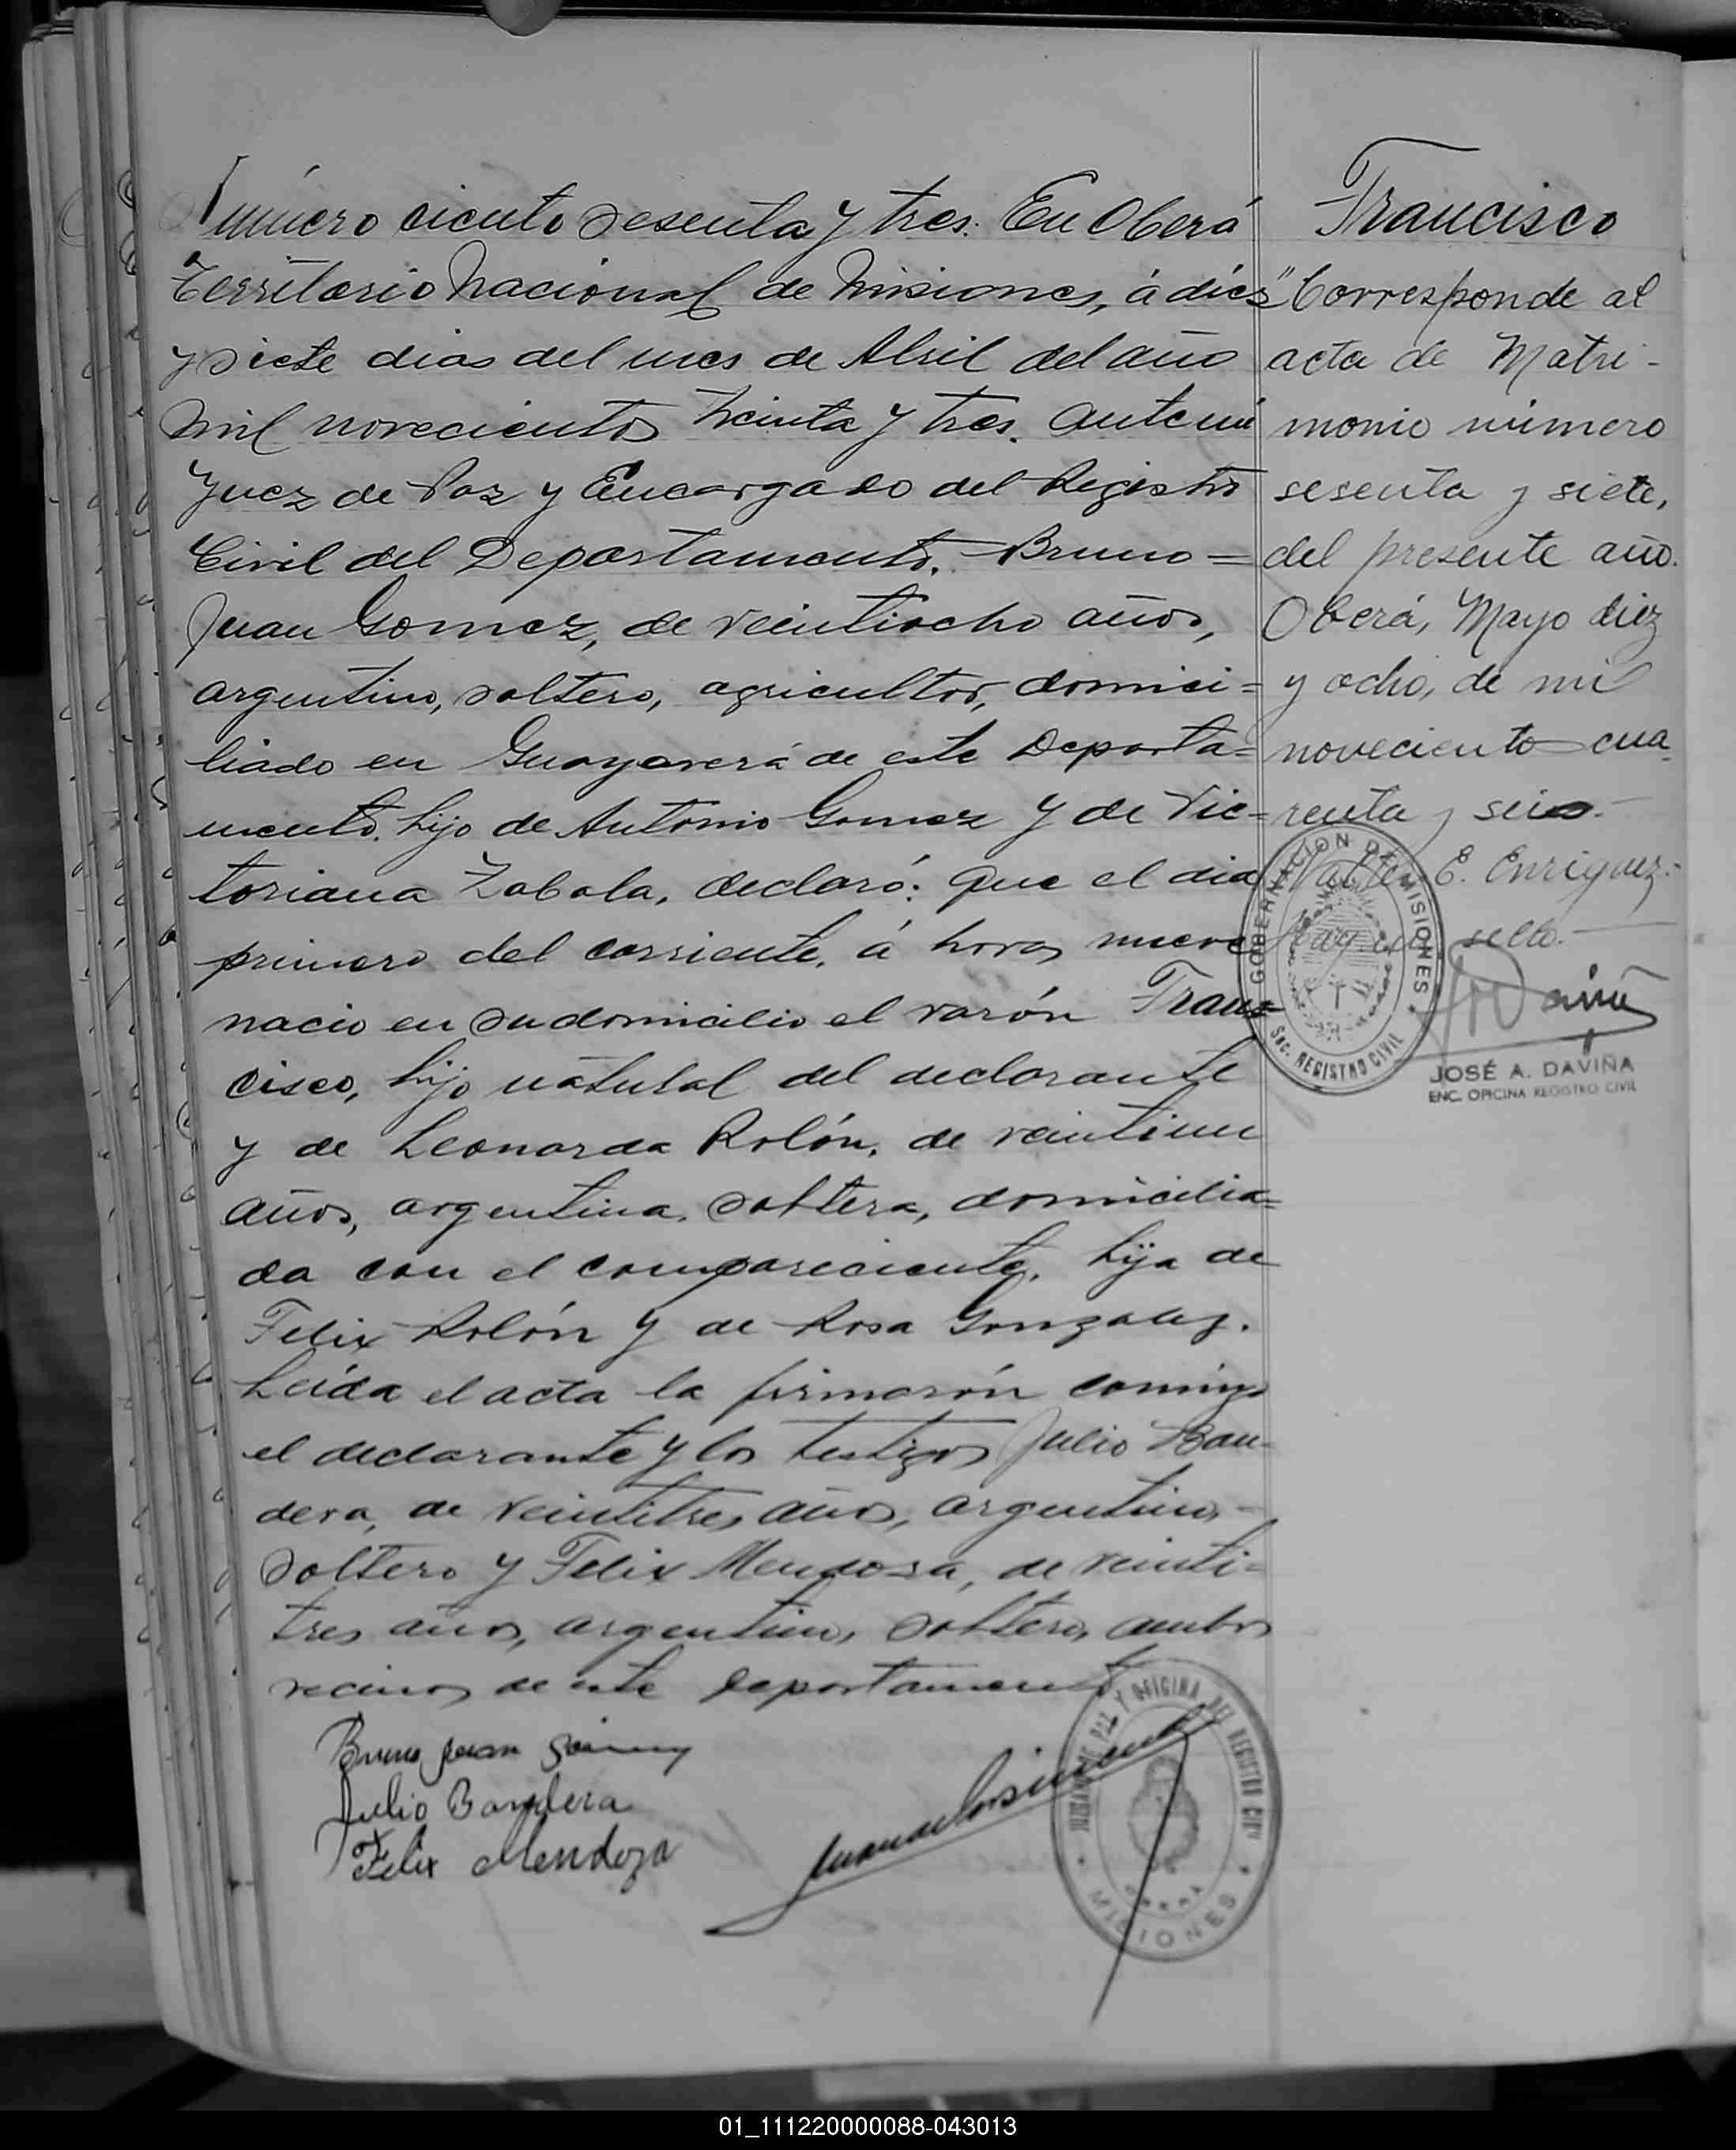 Número ciento sesenta y tres. En Oberá
Territorio Nacional de Misiones, á diez
y siete dias del mes de Abril del año
mil novecientos treinta y tres. ante mi
Juez de Paz y Encargado del Registro
Civil del Departamento. Bruno =
Juan Gomez, de veintiocho años,
argentino, soltero, agricultor, domici=
liado en Guayaverá de este Departa=
mento. hijo de Antonio Gomez y de Vic=
toriana Zabala, declaró: Que el dia
primero del corriente, á horas nueve
nacio en su domicilio el varón Fran=
cisco, hijo natural del declarante
y de Leonarda Rolón, de veintiun
años, argentina, soltera, domicilia=
da con el compareciente, hija de
Felix Rolón y de Rosa Gonzalez.
Leída el acta la firmarón conmigo
el declarante y los testigos Julio Ban=
dera, de veintitres años, argentino, -
soltero y Felix Mendosa, de veinti=
tres años, argentino, soltero, ambos
vecinos de este departamento
Bruno Juan Gómez
Julio Bandera
Felix Mendoza
JUZGADO DE PAZ Y OFICINA DEL REGISTRO CIVIL
OBERÁ
MISIONES
Francisco
"Corresponde al
acta de Matri-
monio número
sesenta y siete,
del presente año.
Oberá, Mayo diez
y ocho, de mil
noveciento cua
renta y seis.-
E. Enriquez.-
Hay un sello.-
GOBERNACION DE MISIONES
Sec. REGISTRO CIVIL
JOSÉ A. DAVIÑA
ENC. OFICINA REGISTRO CIVIL
01_111220000088-043013